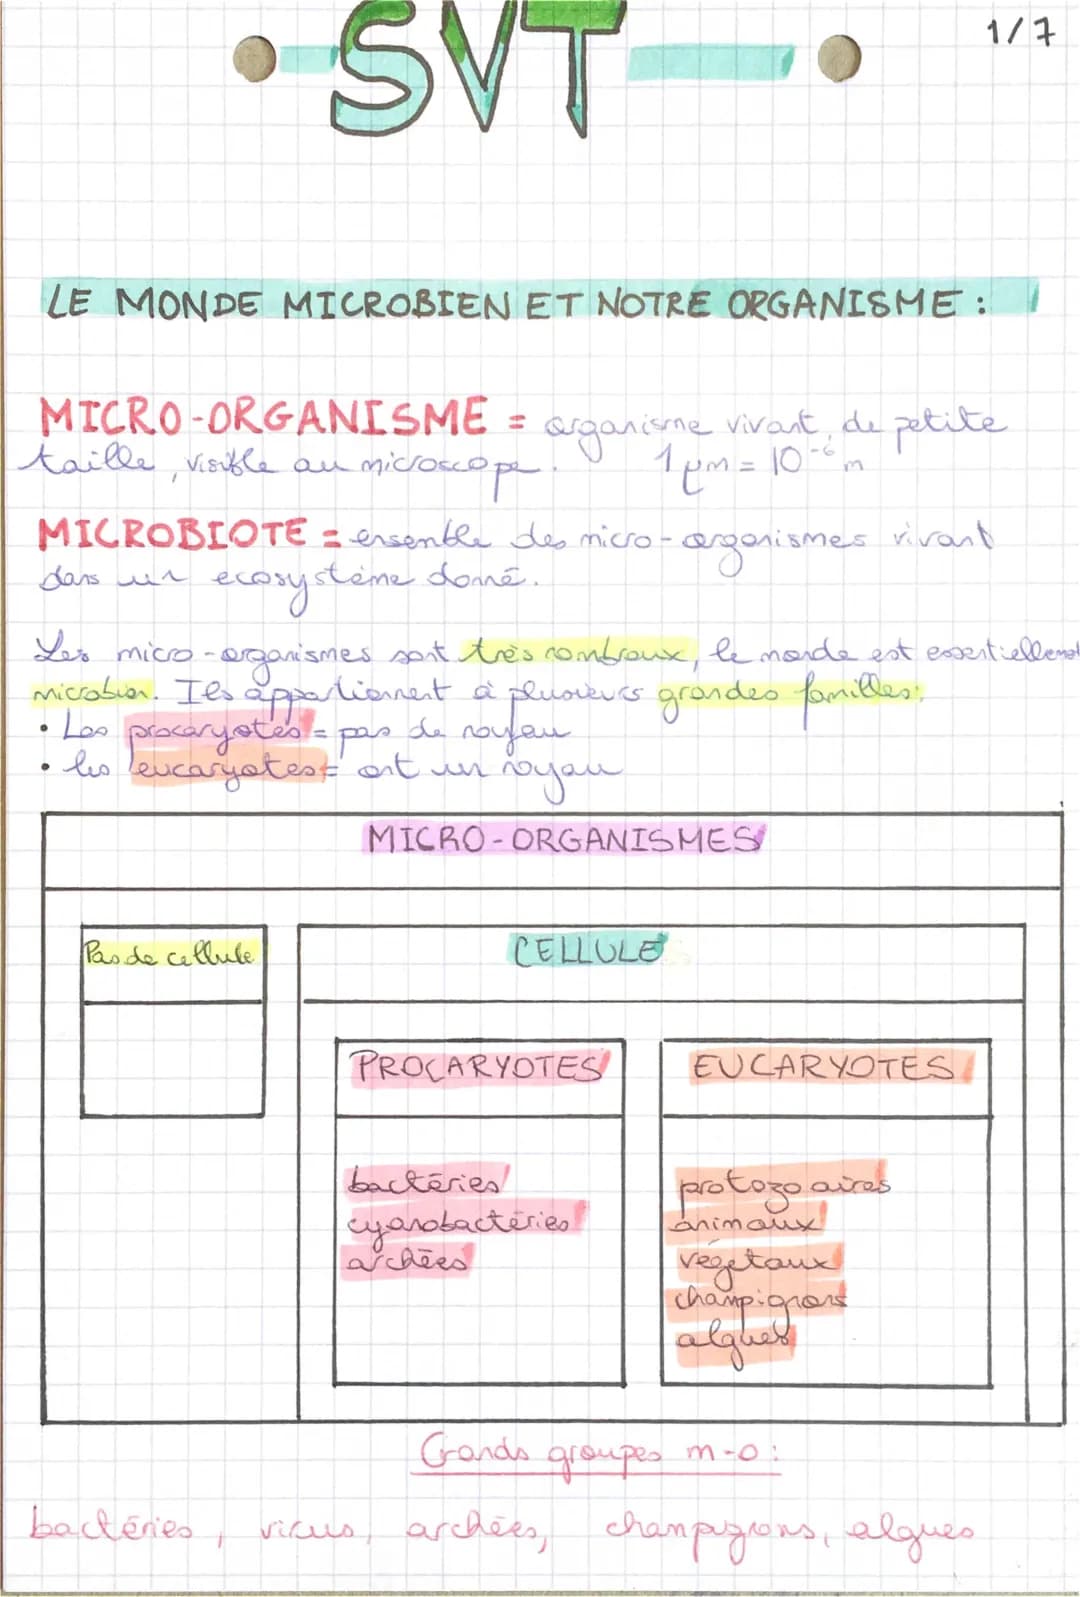 SVT
1/7
LE MONDE MICROBIEN ET NOTRE ORGANISME :
MICRO-ORGANISME = organisme vivant, de petite
taille, visible au microscope. 1 µm = 10⁻⁶ m
MICROBIOTE = ensemble des micro-organismes vivant
dans un ecosystème donné.
Les micro-organismes sont très nombreux, le monde est essentiellement
microbien. Ils appartiennent à plusieurs grandes familles:
• Les procaryotes = pas de noyau
• les eucaryotes = ont un noyau
MICRO-ORGANISMES
Pas de cellule
CELLULE
PROCARYOTES
bactéries
cyanobactéries
archées
EUCARYOTES
protozoaires
animaux
végétaux
champignons
algues
Grands groupes m-o :
bactéries, virus, archées, champignons, algues